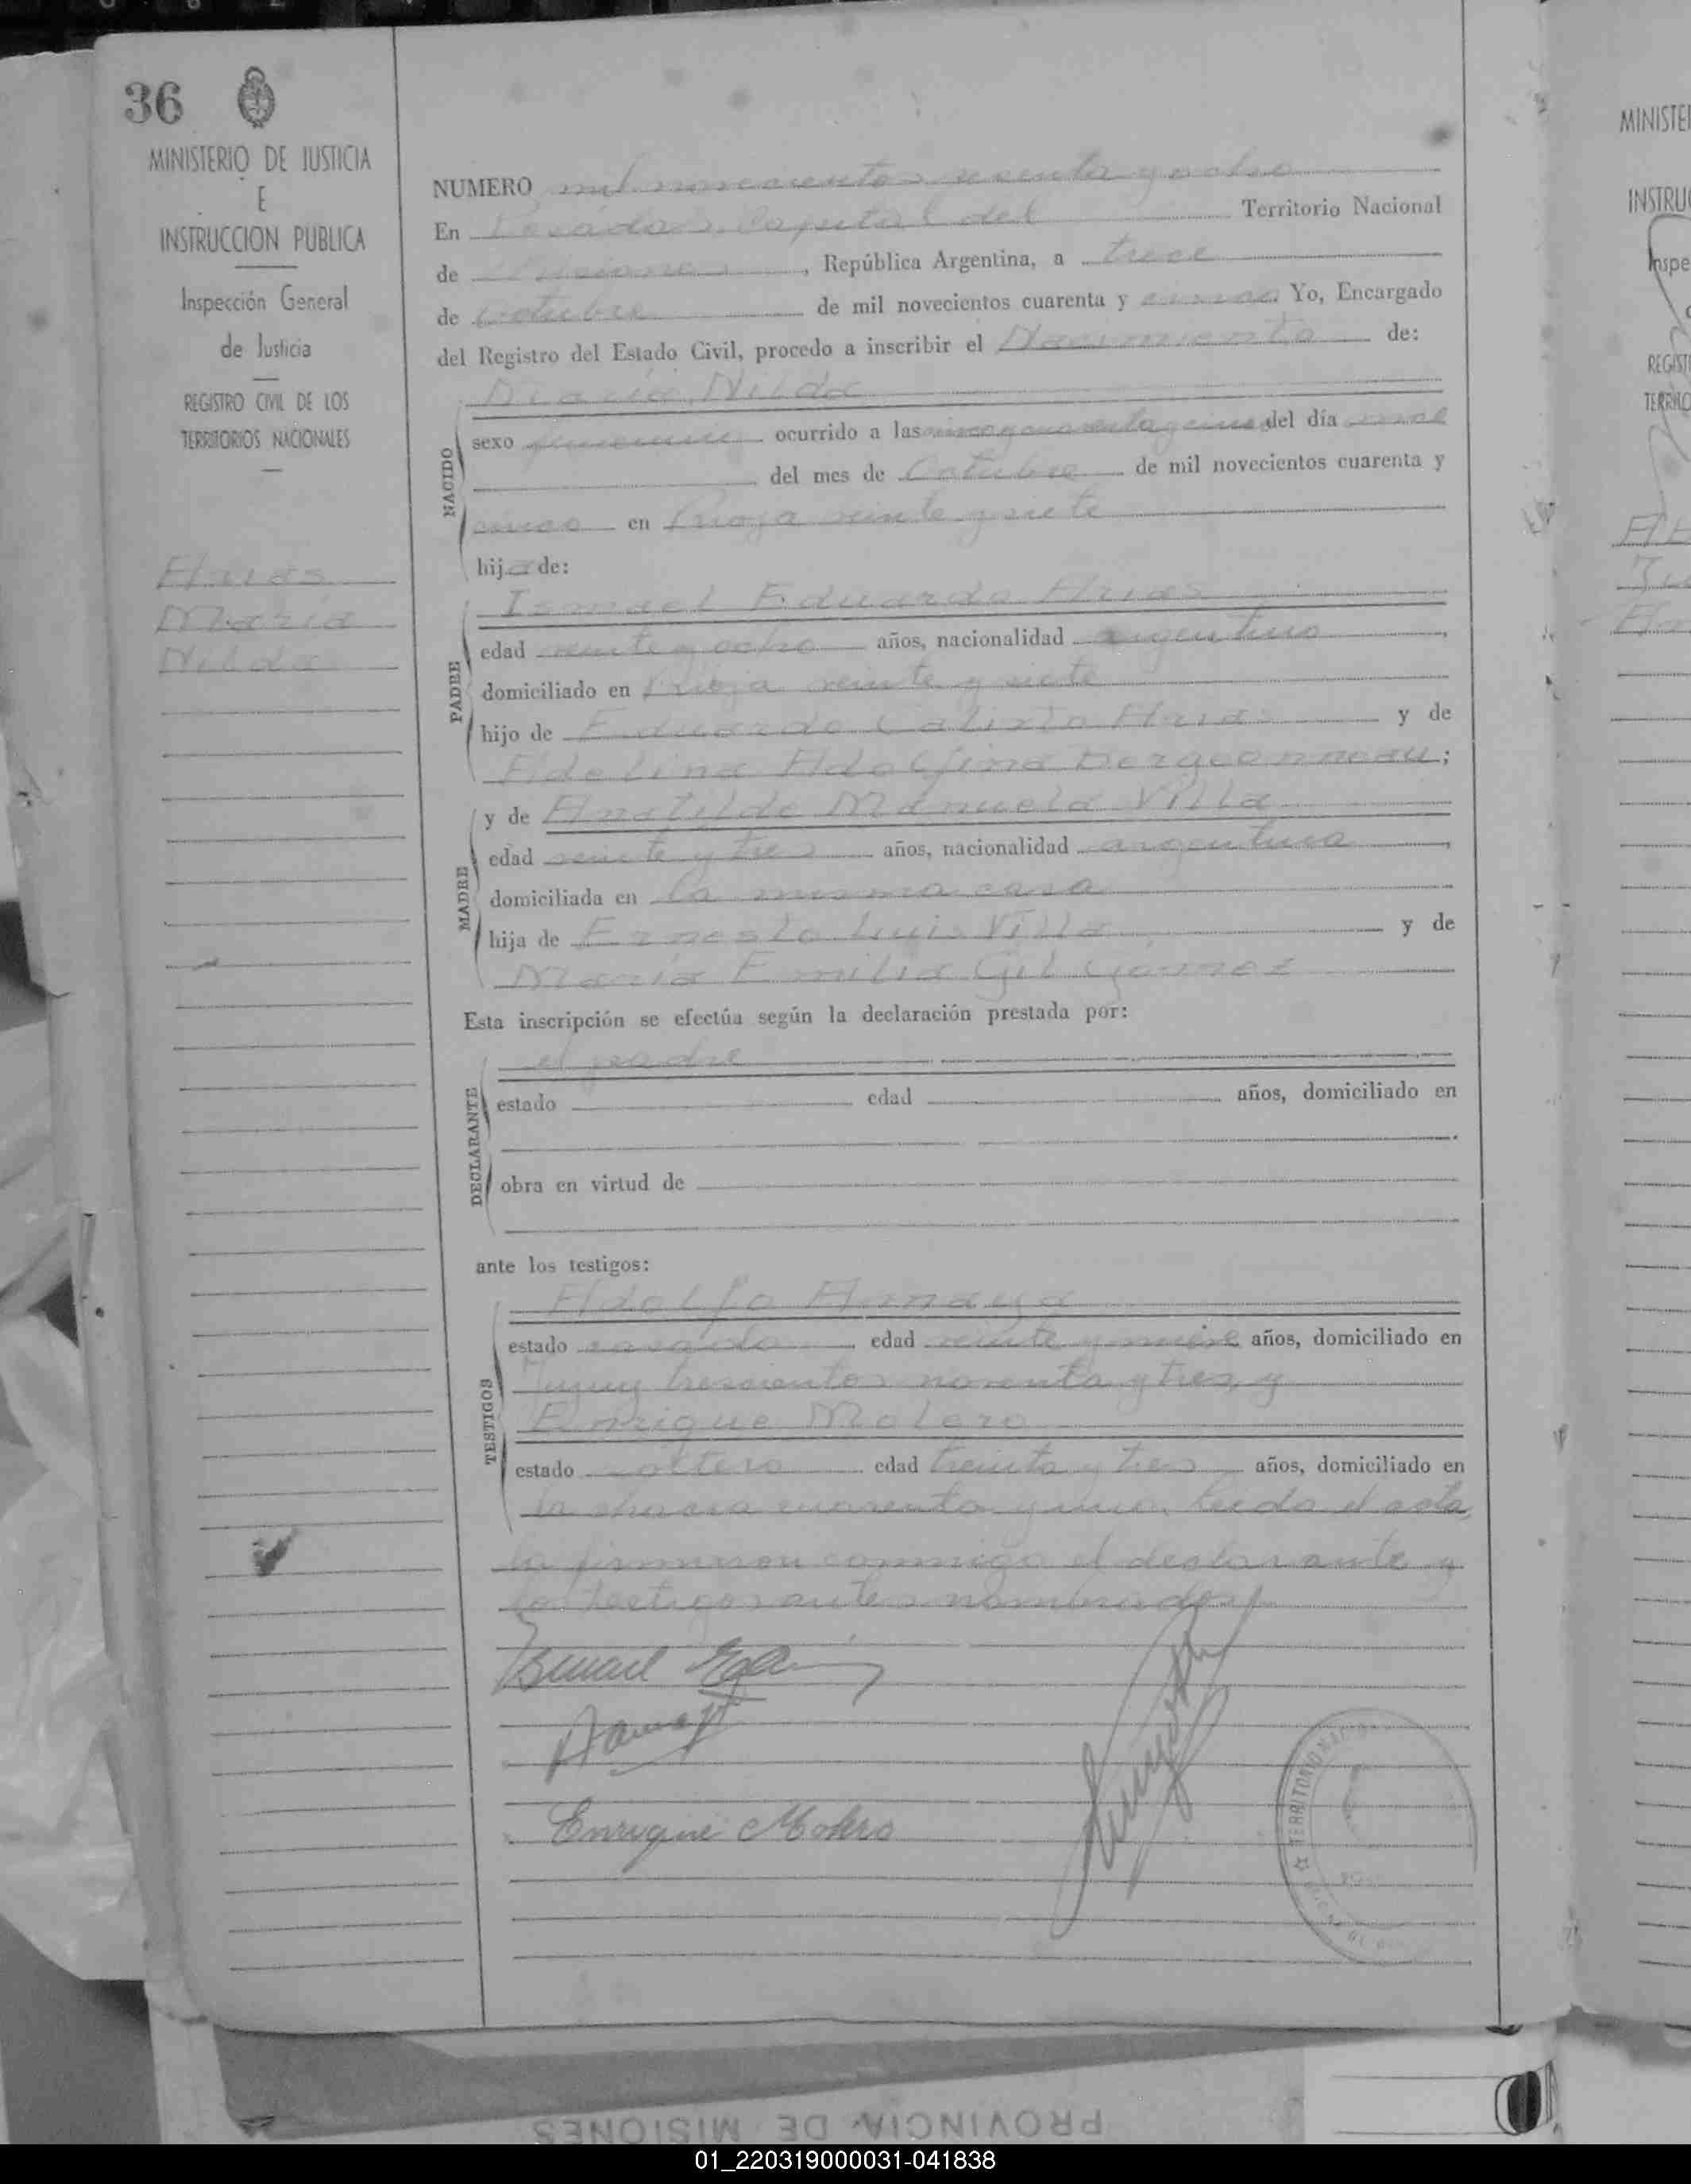 36
MINISTERIO DE JUSTICIA
E
INSTRUCCION PUBLICA
Inspección General
de Justicia
REGISTRO CIVIL DE LOS
TERRITORIOS NACIONALES
Arias
María
Nilda
NUMERO mil novecientos y ocho
En Posadas, Capital del Territorio Nacional
de Misiones, República Argentina, a trece
de Octubre de mil novecientos cuarenta y cinco Yo, Encargado
del Registro del Estado Civil, procedo a inscribir el Nacimiento de:
María Nilda
NACIDO
sexo femenino ocurrido a las cinco y cuarenta y cinco del día once
del mes de Octubre de mil novecientos cuarenta y
cinco en Rioja veinte y siete
hija de:
PADRE
Ismael Eduardo Arias
edad veinte y ocho años, nacionalidad argentino,
domiciliado en Rioja veinte y siete
hijo de Eduardo Calixto Arias y de
Adelina Adolfina Bergeonneau;
MADRE
y de Anatilde Manuela Villa
edad veinte y tres años, nacionalidad argentina,
domiciliada en la misma casa
hija de Ernesto Luis Villa y de
María Emilia Gil Gomez
Esta inscripción se efectúa según la declaración prestada por:
DECLARANTE
el padre
estado edad años, domiciliado en
obra en virtud de
ante los testigos:
TESTIGOS
Adolfo Amaya
estado casado edad veinte y nueve años, domiciliado en
Jujuy trescientos noventa y tres, y
Enrique Molero
estado soltero edad treinta y tres años, domiciliado en
la chacra cuarenta y Leída el acta,
la firmaron conmigo el declarante y
los testigos antes nombrados
Ismael E
Amaya
Enrique Molero
TERRITORIO
MINISTE
INSTRU
Inspe
REGIST
TERRITO
PROVINCIA DE MISIONES
01_220319000031-041838